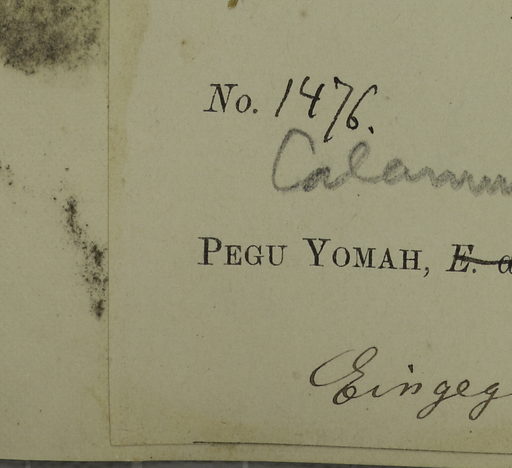 No. 1476.
PEGU YOMAH, E. a
Eingeg